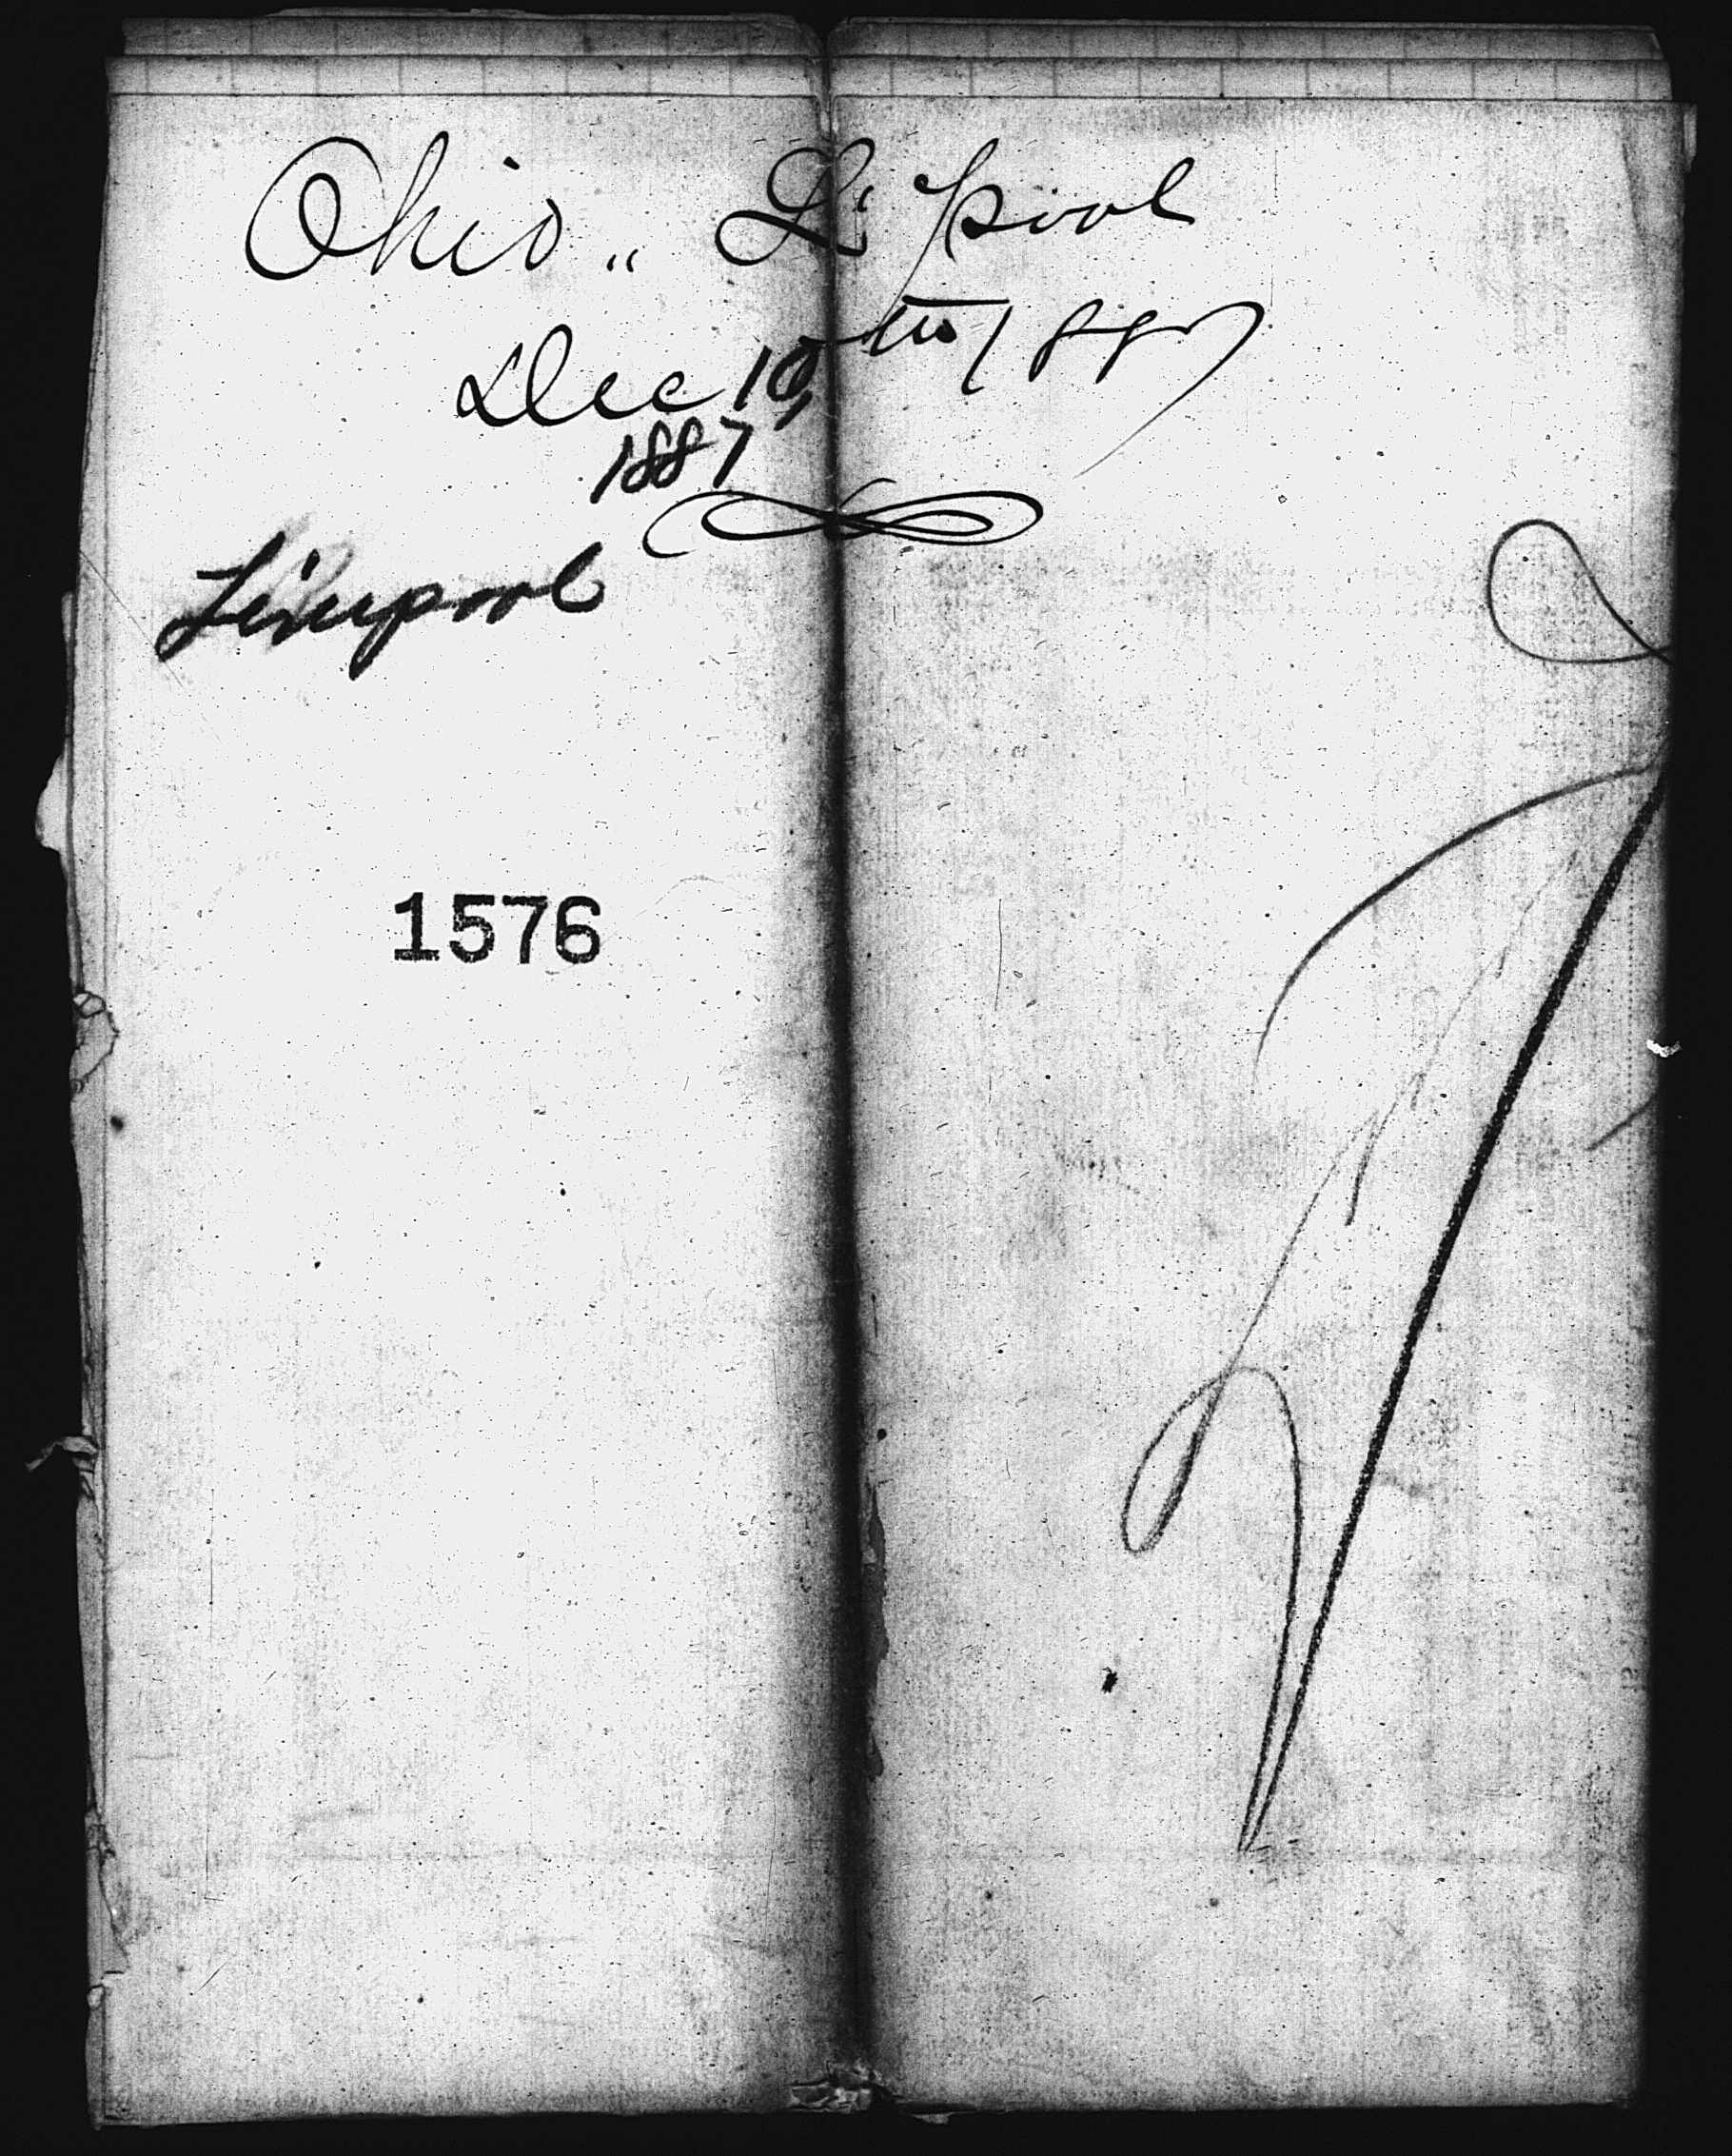 Ohio „ L'pool
Dec 10th 1887
1887
Liverpool
1576